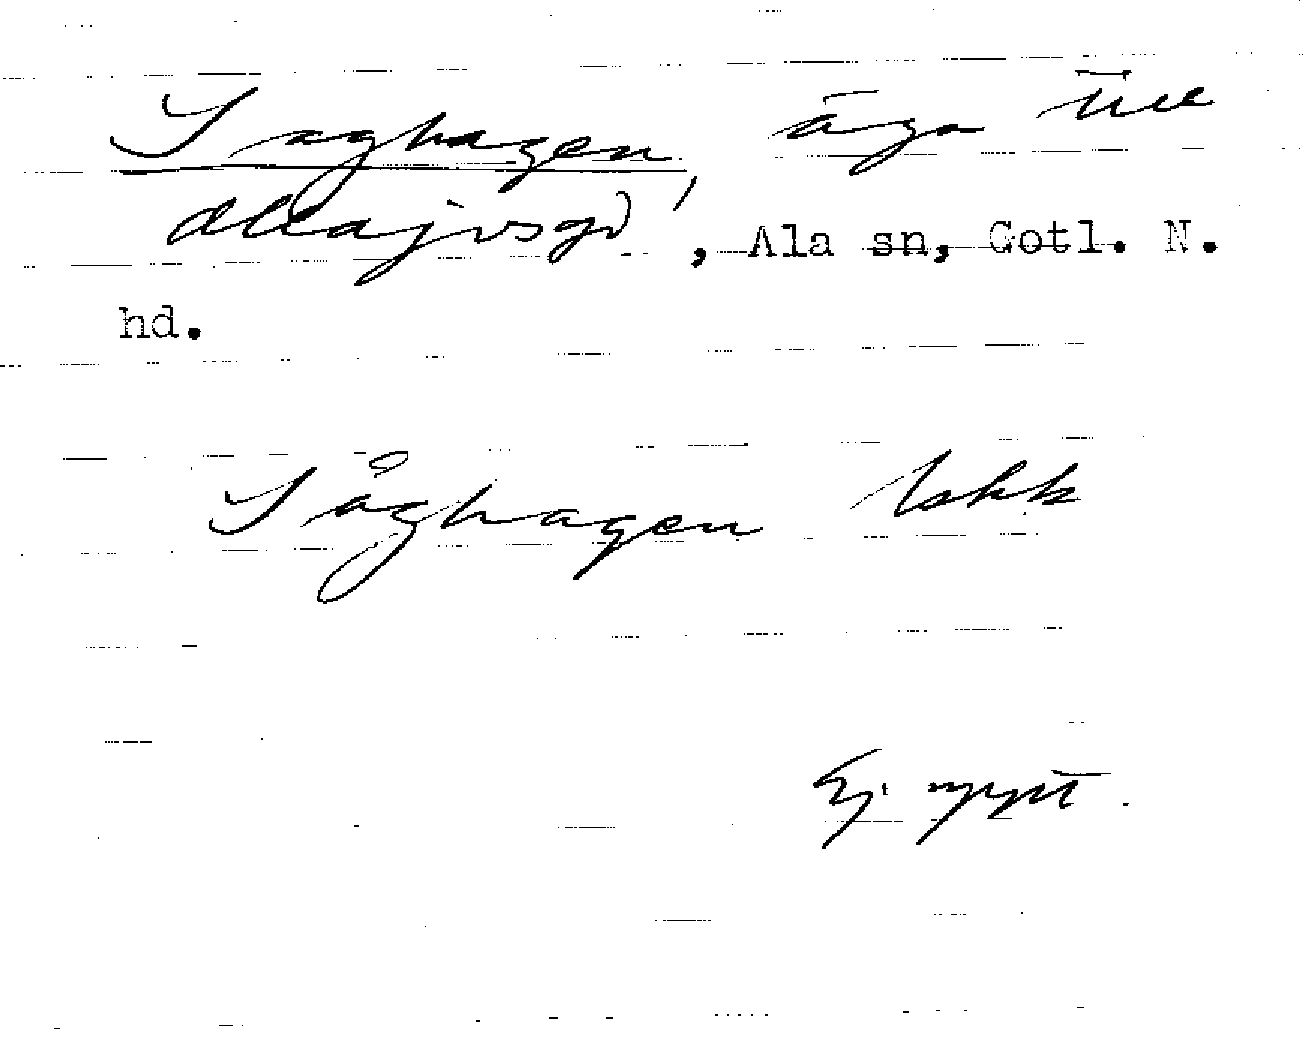 Saghagen, äga till
Allajvsgd, Ala sn, Gotl. N.
hd.
Såghagen
Ej nytt.